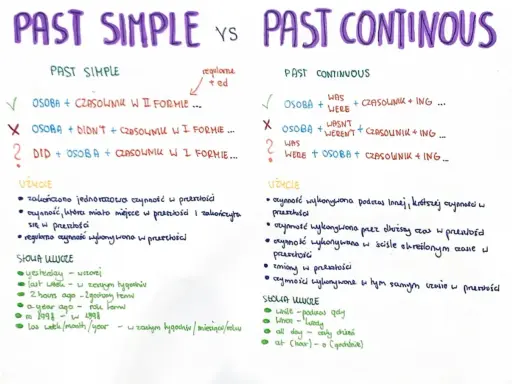 PAST SIMPLE VS PAST CONTINOUS
PAST SIMPLE
regularne
+ ed
✓ OSOBA + CZASOWNIK W II FORMIE ...
X OSOBA + DIDN'T + CZASOWNIK W I FORMIE ...
? DID + OSOBA + CZASOWNIK W I FORMIE ...
UŻYCIE
• zakończona jednorazowa czynność w przeszłości
• czynność, która miała miejsce w przeszłości i zakończyła
się w przeszłości
• regularna czynność wykonywana w przeszłości
SŁOWA KLUCZE
• yesterday - wczoraj
• last week - w zeszłym tygodniu
• 2 hours ago - 2 godziny temu
• a year ago - rok temu
• in 1998 - w 1998
• las week/month/year - w zeszłym tygodniu/miesiącu/roku
PAST CONTINUOUS
✓ OSOBA + WAS
WERE + CZASOWNIK + ING ...
X OSOBA + WASN'T
WEREN'T + CZASOWNIK + ING ...
? WAS
WERE + OSOBA + CZASOWNIK + ING ...
UŻYCIE
• czynność wykonywana podczas innej, krótszej czynności w
przeszłości
• czynność wykonywana przez dłuższy czas w przeszłości
• czynność wykonywana w ściśle określonym czasie w
przeszłości
• zmiany w przeszłości
• czynności wykonywane w tym samym czasie w przeszłości
SŁOWA KLUCZE
• while - podczas gdy
• when - kiedy
• all day - cały dzień
• at (hour) - o (godzinie)